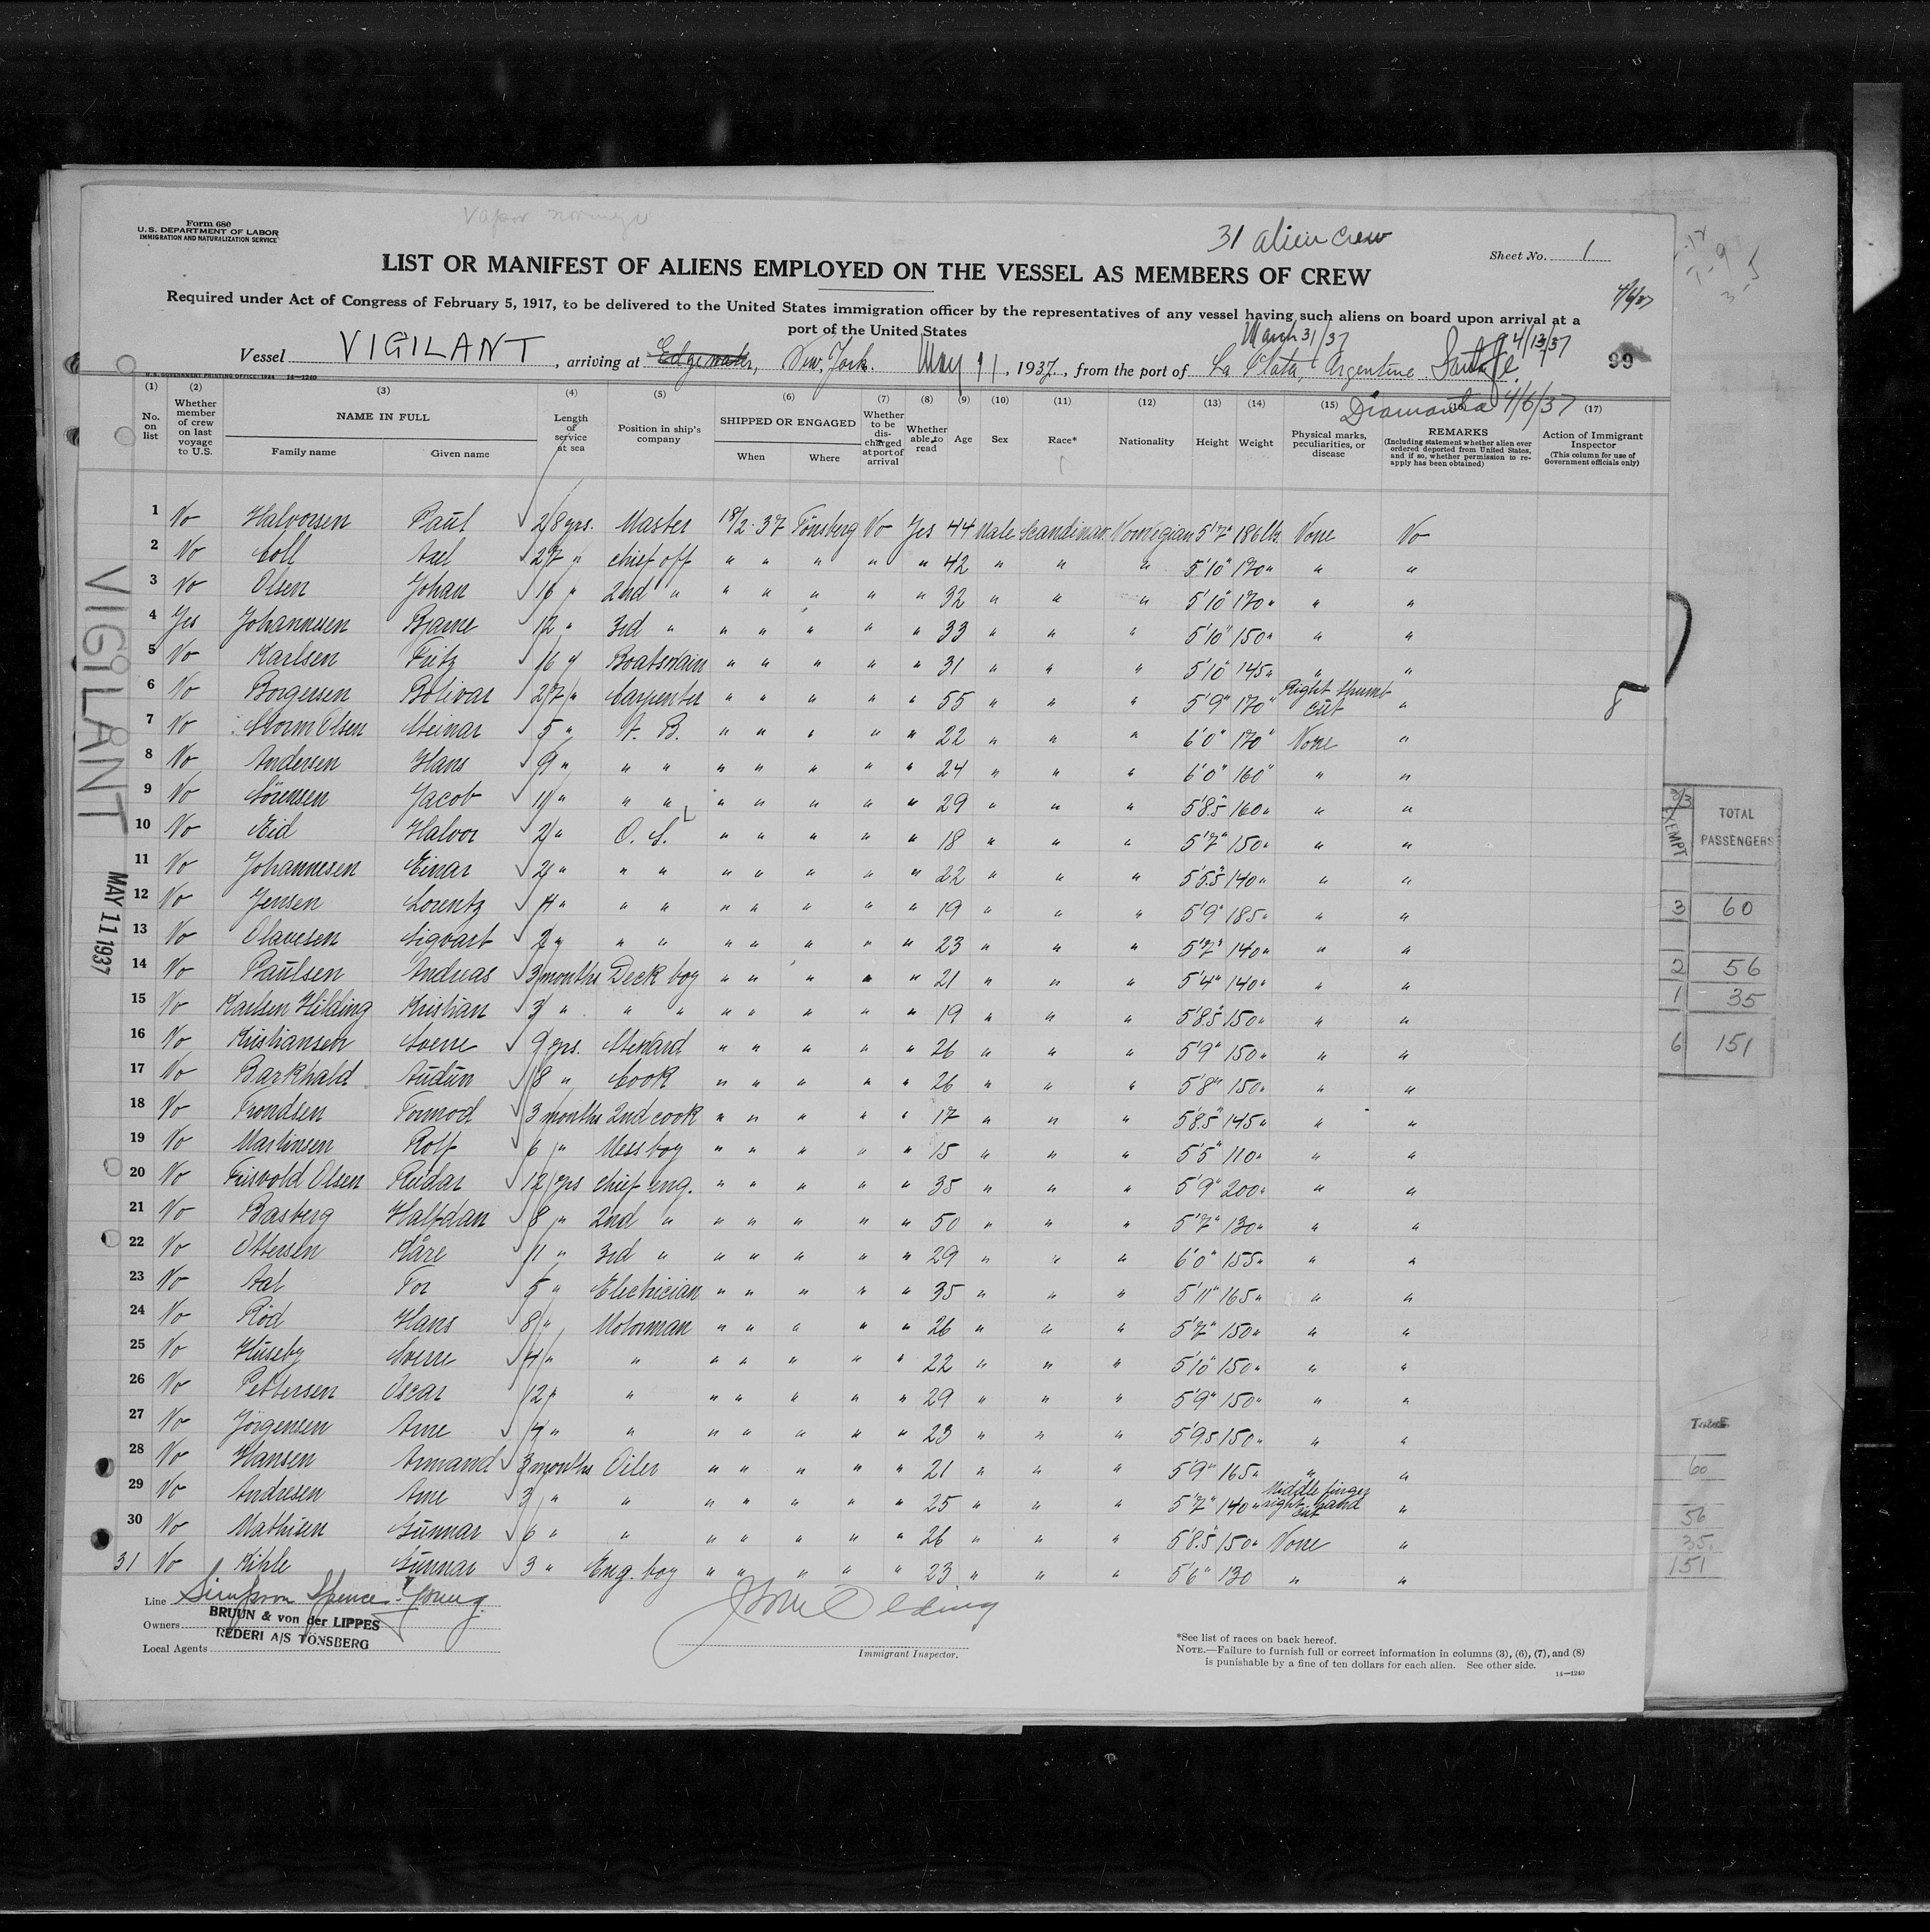 Form 680
U.S. DEPARTMENT OF LABOR
IMMIGRATION AND NATURALIZATION SERVICE
31 alien crew
Sheet No. 1
LIST OR MANIFEST OF ALIENS EMPLOYED ON THE VESSEL AS MEMBERS OF CREW
Required under Act of Congress of February 5, 1917, to be delivered to the United States immigration officer by the representatives of any vessel having such aliens on board upon arrival at a
port of the United States
March 31/37
4/13/37
Vessel VIGILANT, arriving at Edgewater, New York. May 11, 1937, from the port of La Plata, Argentine. Santa Fe
99
U.S. GOVERNMENT PRINTING OFFICE: 1934 14—1240
Diamante 4/6/37
(1) (2) (3) (4) (5) (6) (7) (8) (9) (10) (11) (12) (13) (14) (15) (17)
No. on list
Whether member of crew on last voyage to U.S.
NAME IN FULL
Family name
Given name
Length of service at sea
Position in ship's company
SHIPPED OR ENGAGED
When
Where
Whether to be discharged at port of arrival
Whether able to read
Age
Sex
Race*
Nationality
Height
Weight
Physical marks, peculiarities, or disease
REMARKS
(Including statement whether alien ever ordered deported from United States, and if so, whether permission to reapply has been obtained)
Action of Immigrant Inspector
(This column for use of Government officials only)
1 No Halvorsen Paul 28 yrs. Master 18/2-37 Tönsberg No Yes 44 Male Scandinav. Norwegian 5'7" 186 lbs. None No
2 No Coll Axel 27 " chief off " " " " " 42 " " " 5'10" 170 " " "
3 No Olsen Johan 16 " 2nd " " " " " " 32 " " " 5'10" 170 " " "
4 Yes Johannesen Bjarne 12 " 3rd " " " " " " 33 " " " 5'10" 150 " " "
5 No Karlsen Fritz 16 " Boatswain " " " " " 31 " " " 5'10" 145 " " "
6 No Borgersen Bolivar 27 " Carpenter " " " " " 55 " " " 5'9" 170 " Right thumb cut "
7 No Storm Olsen Steinar 5 " A. B. " " " " " 22 " " " 6'0" 170 " None "
8 No Andersen Hans 9 " " " " " " " " 24 " " " 6'0" 160 " " "
9 No Sörensen Jacob 11 " " " " " " " " 29 " " " 5'8.5" 160 " " "
10 No Eid Halvor 2 " O. S. " " " " " 18 " " " 5'7" 150 " " "
11 No Johannesen Einar 2 " " " " " " " " 22 " " " 5'5.5" 140 " " "
12 No Jensen Lorentz 4 " " " " " " " " 19 " " " 5'9" 185 " " "
13 No Olavesen Sigvart 7 " " " " " " " " 23 " " " 5'7" 140 " " "
14 No Paulsen Andreas 3 months Deck boy " " " " " 21 " " " 5'4" 140 " " "
15 No Karlsen Hilding Kristian 3 " " " " " " " " 19 " " " 5'8.5" 150 " " "
16 No Kristiansen Sverre 9 yrs. Steward " " " " " 26 " " " 5'9" 150 " " "
17 No Barkhald Audun 8 " Cook " " " " " 26 " " " 5'8" 150 " " "
18 No Trondsen Tormod 3 months 2nd cook " " " " " 17 " " " 5'8.5" 145 " " "
19 No Martinsen Rolf 6 " Mess boy " " " " " 15 " " " 5'5" 110 " " "
20 No Frisvold Olsen Reidar 12 yrs chief eng. " " " " " 35 " " " 5'9" 200 " " "
21 No Basberg Halfdan 8 " 2nd " " " " " " 50 " " " 5'7" 130 " " "
22 No Ottersen Kåre 11 " 3rd " " " " " " 29 " " " 6'0" 155 " " "
23 No Aal Tor 5 " Electrician " " " " " 35 " " " 5'11" 165 " " "
24 No Röd Hans 8 " Motorman " " " " " 26 " " " 5'7" 150 " " "
25 No Huseby Sverre 4 " " " " " " " 22 " " " 5'10" 150 " " "
26 No Pettersen Oscar 12 " " " " " " " 29 " " " 5'9" 150 " " "
27 No Jörgensen Arne 4 " " " " " " " 23 " " " 5'9.5 150 " " "
28 No Hansen Armand 3 months Oiler " " " " " 21 " " " 5'9" 165 " " "
29 No Andresen Arne 3 " " " " " " " 25 " " " 5'7" 140 " Middle finger right hand cut "
30 No Mathisen Gunnar 6 " " " " " " " 26 " " " 5'8.5" 150 " None "
31 No Kihle Gunnar 3 " Eng. boy " " " " " 23 " " " 5'6" 130 " "
Line Simpson Spence Young.
Owners BRUUN & von der LIPPES
Local Agents REDERI A/S TÖNSBERG
Immigrant Inspector.
*See list of races on back hereof.
NOTE.—Failure to furnish full or correct information in columns (3), (6), (7), and (8)
is punishable by a fine of ten dollars for each alien. See other side.
14—1240
VIGILANT
MAY 11 1937
EXEMPT TOTAL PASSENGERS
3 60
2 56
1 35
6 151
60
56
35
151